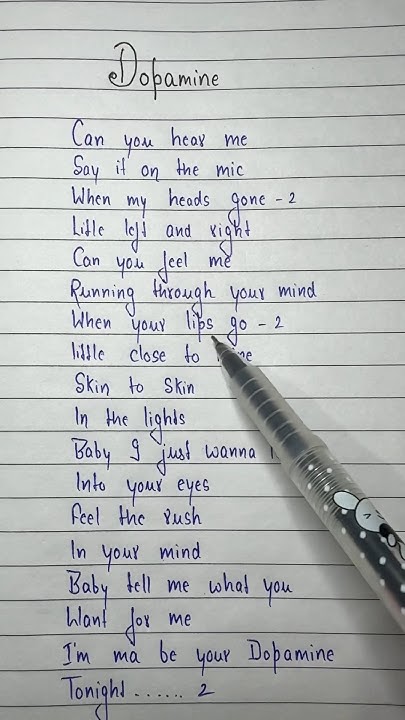 Dopamine
Can you hear me
Say it on the mic
When my heads gone - 2
Little left and right
Can you feel me
Running through your mind
When your lips go - 2
little close to
Skin to Skin
In the lights
Baby I just wanna
Into your eyes
Feel the rush
In your mind
Baby tell me what you
Want for me
I'm ma be your Dopamine
Tonight ...... 2